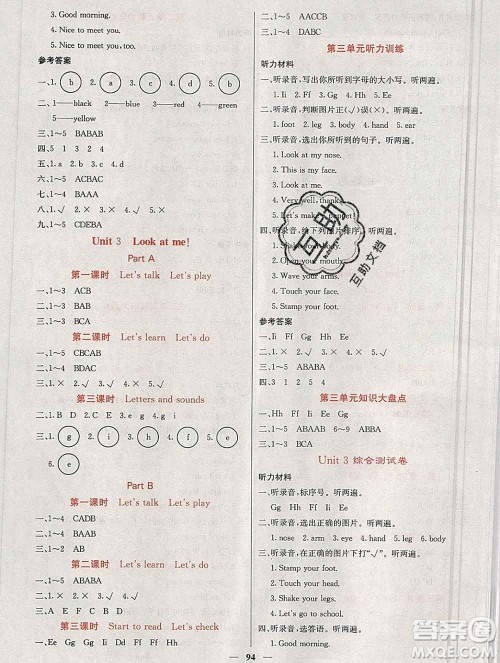 3. Good morning.
4. Nice to meet you.
5. Nice to meet you, too.
参考答案
一、1. b 2. a 3. b 4. a
二、1——black 2——blue 3——red 4——green
5——yellow
三、1~5 BABAB
四、5 3 1 4 2
五、1. a 2. c 3. b 4. c
六、1~5 ACBAC
七、1~4 BAAA
八、1. × 2. × 3. √ 4. √
九、1~5 CDEBA
Unit 3 Look at me!
Part A
第一课时 Let's talk Let's play
一、1~3 ACB
二、1~4 BABA
三、1~3 BCA
第二课时 Let's learn Let's do
一、1~5 CBCAB
二、1~4 BDAC
三、1. √ 2. × 3. × 4. √
第三课时 Letters and sounds
一、1. e 2. g 3. h 4. i 5. g 6. e
Part B
第一课时 Let's talk Let's play
一、1~4 CADB
二、1~4 BABA
三、1~2 AB
第二课时 Let's learn Let's do
一、1~5 ABABA
二、1~3 BCA
三、1~4 ABAA
第三课时 Start to read Let's check
一、Ee Gg Hh Ii
二、1~5 AACCB
三、1~4 DABC
第三单元听力训练
听力材料
一、听录音,写出你所听到字母的大小写。听两遍。
1. Ii 2. Ff 3. Gg 4. Hh 5. Ee
二、听录音,判断图片正(√)误(×)。听两遍。
1. foot 2. leg 3. hand 4. body 5. ear
三、听录音,选出你所听到的句子。听两遍。
1. Look at my nose.
2. This is my face.
3. Look at me!
4. Very well, thanks.
5. Let's make a puppet!
四、听录音,给下列图片排序。听两遍。
1. Shake your body.
2. Touch your head.
3. Wave your arms.
4. Touch your face.
5. Stamp your foot.
参考答案
一、Ii Ff Gg Hh Ee
二、1. × 2. √ 3. √ 4. × 5. √
三、1~5 ABABA
四、3 4 1 2 5
第三单元知识大盘点
1~5 ABABB 6~9 ABAA
Unit 3 综合测试卷
听力材料
一、听录音,标序号。听两遍。
Gg Ff Hh Ee Ii
二、听录音,选出正确的图片。听两遍。
1. nose 2. arm 3. eye 4. leg
三、听录音,在正确的图片下打“√”。听两遍。
1. Stamp your foot.
2. Touch your head.
3. Shake your legs.
4. Shake your body.
四、听录音,选答语。听两遍。
1. Good morning!
94
互助
互助文档
答案圈
MXQE.COM